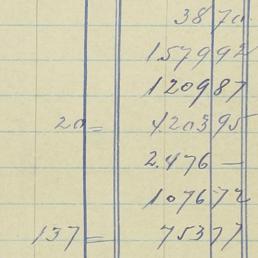 3870
157992
120987
20= 420395
2.476 —
107672
137= 75377